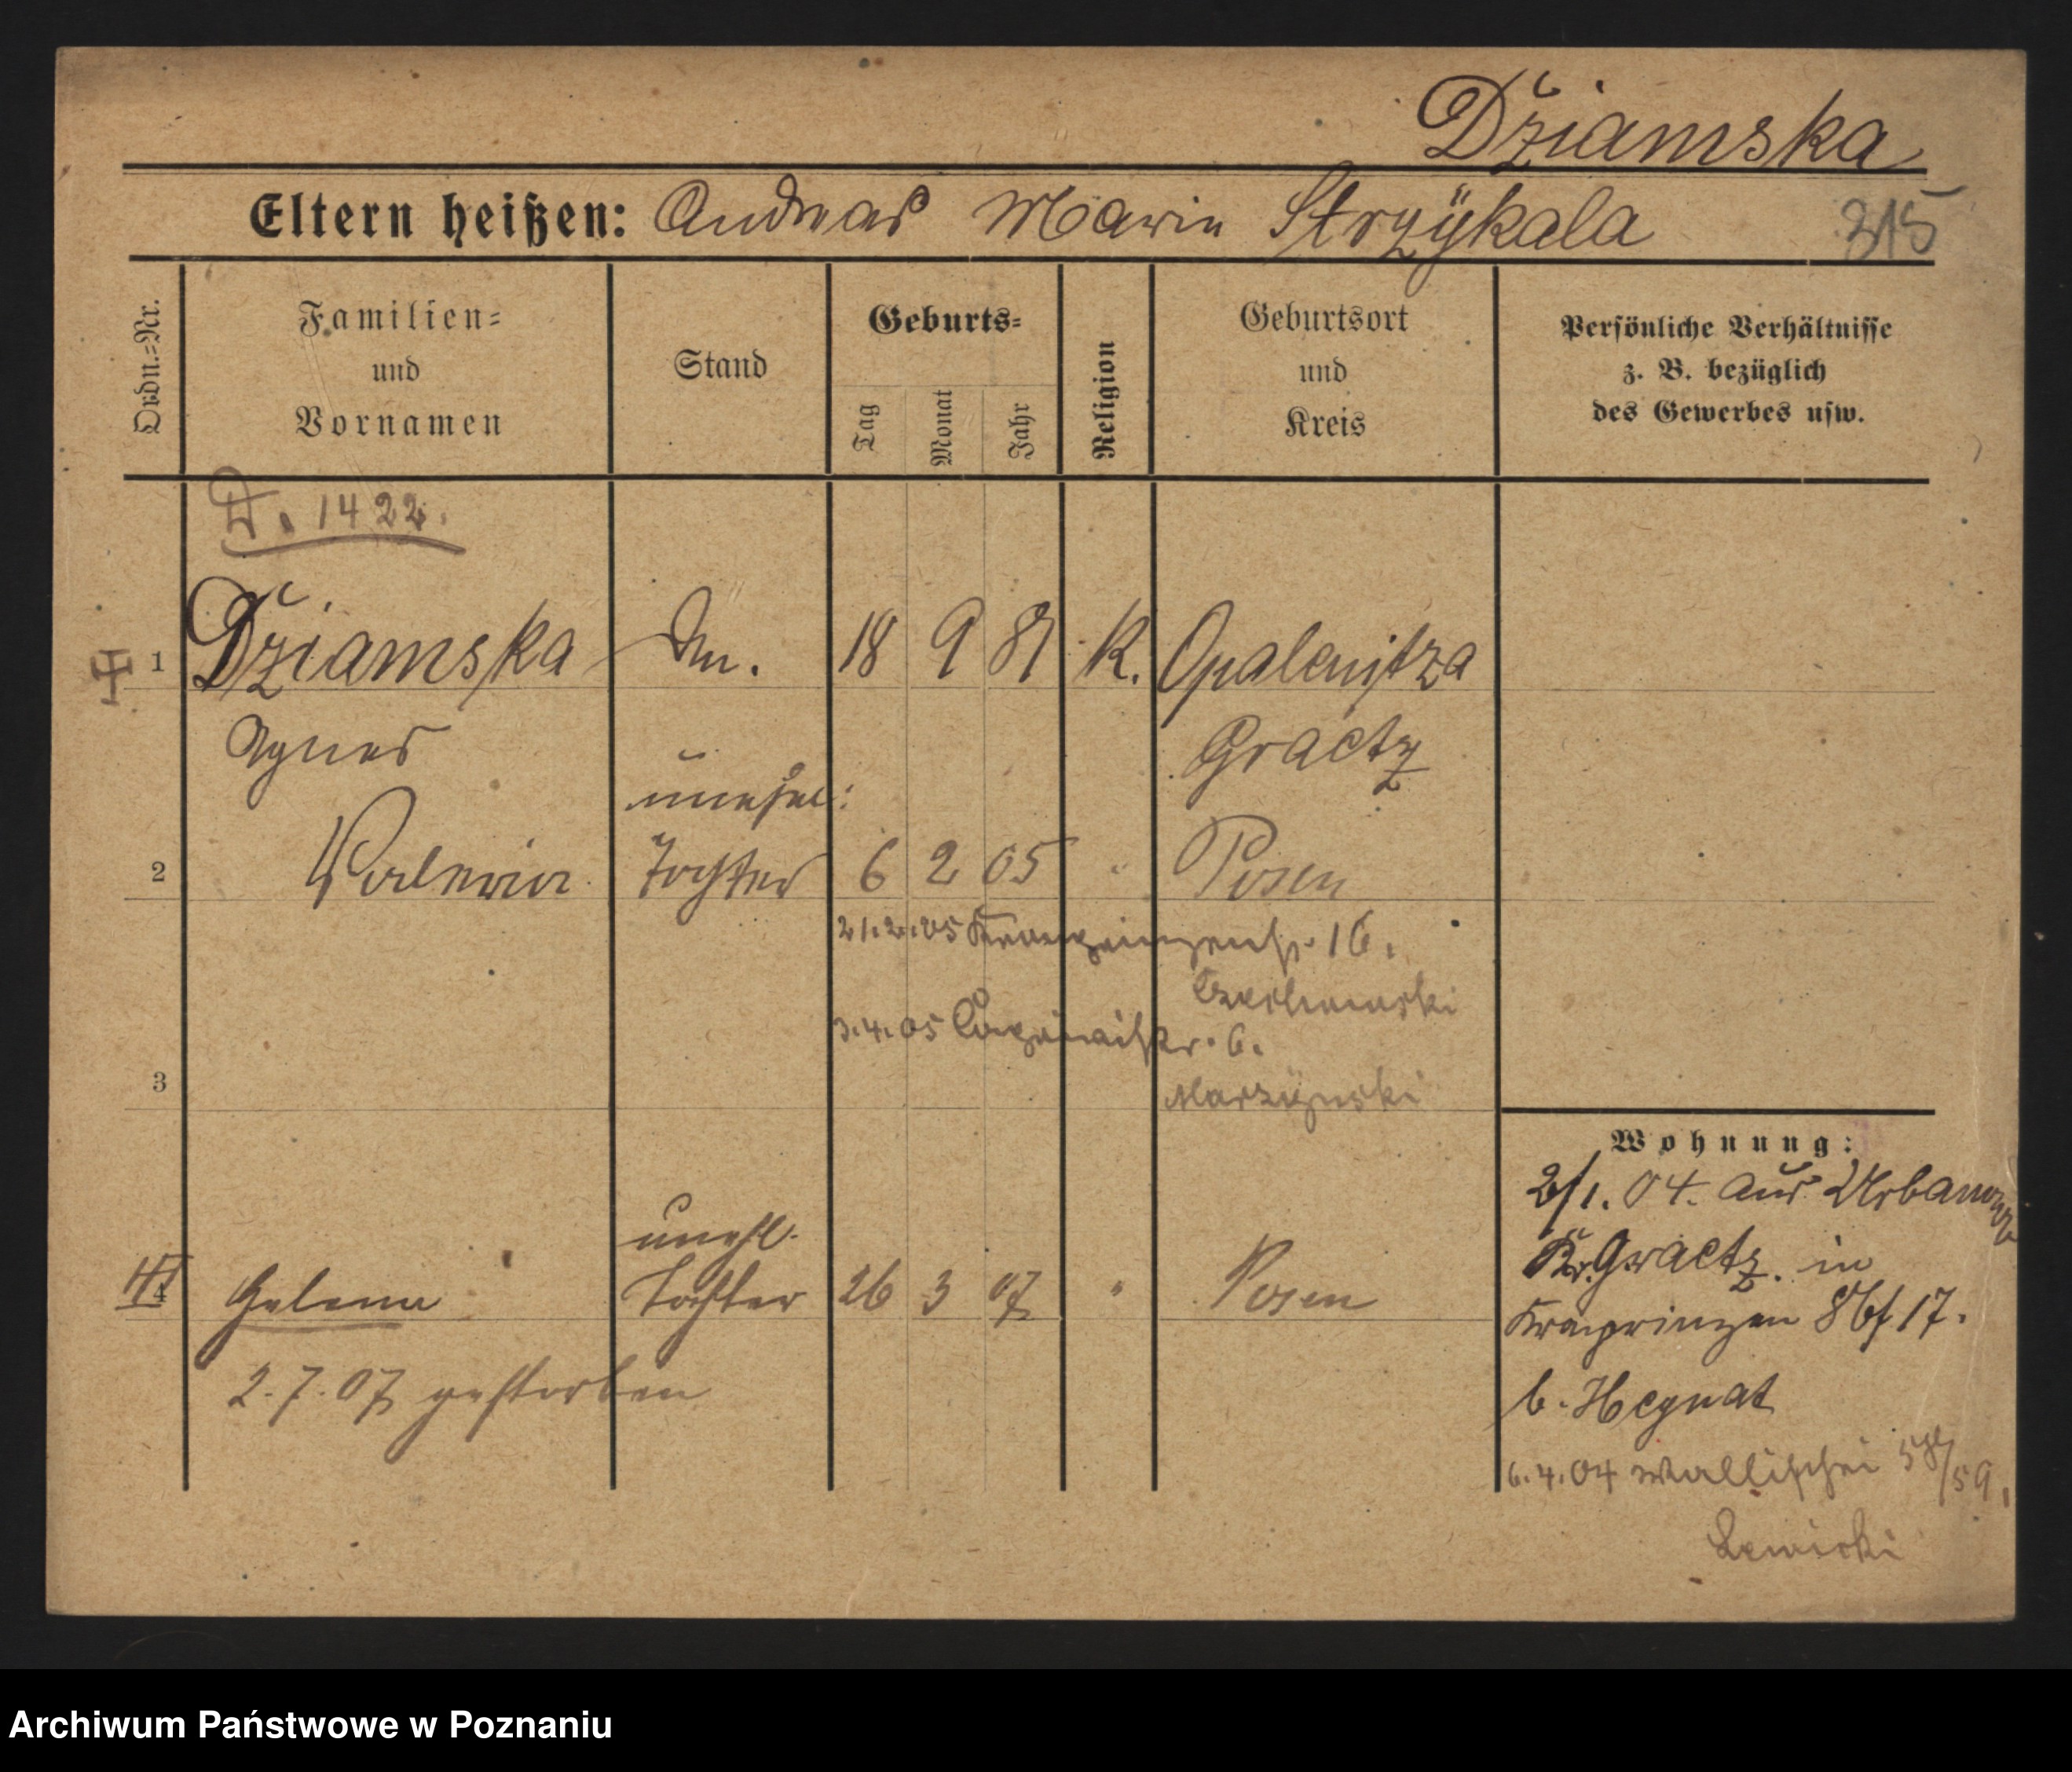 Dziamska
Eltern heißen: Andreas Marie Strzÿkala 315
Ordn.=Nr.
Familien=
und
Vornamen
Stand
Geburts=
Tag
Monat
Jahr
Religion
Geburtsort
und
Kreis
Persönliche Verhältnisse
z. B. bezüglich
des Gewerbes usw.
D. 1422.
1 Dziamska 18 9 81 K. Opalenitza
Agnes Graetz
unehel:
2 Valeria Tochter 6 2 05 " Posen
21.2.05 Kronprinzenstr. 16.
3.4.05 6.
3 Marzÿnski
Wohnung:
2/1. 04. aus Urbanowo
Kr. Graetz in
Kronprinzen 86 17.
b. Hegnat
6.4.04 Wallischei 58/59.
Lewicki
unehl.
4 Helena Tochter 26 3 07 " Posen
2.7.07 gestorben
Archiwum Państwowe w Poznaniu